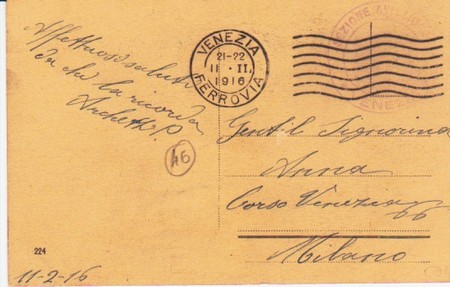 Affettuosi saluti
da chi la ricorda
Archetti P.
46
224
11-2-16
VENEZIA
21-22
11 · II.
1916
FERROVIA
SEZIONE
VENEZIA
Gentil Signorina
Anna
Corso Venezia 66
Milano